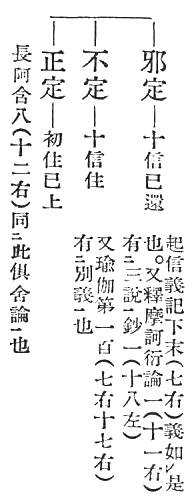 邪定―十信已還
不定―十信住
正定―初住已上
起信義記下末(七右)義如㆑是
也。又釋摩訶衍論一(十一右)
有㆓三說㆒鈔一(十八左)
又瑜伽第一百(七右十七右)
有㆓別義㆒也
長阿含八(十二右)同㆓此俱舍論㆒也